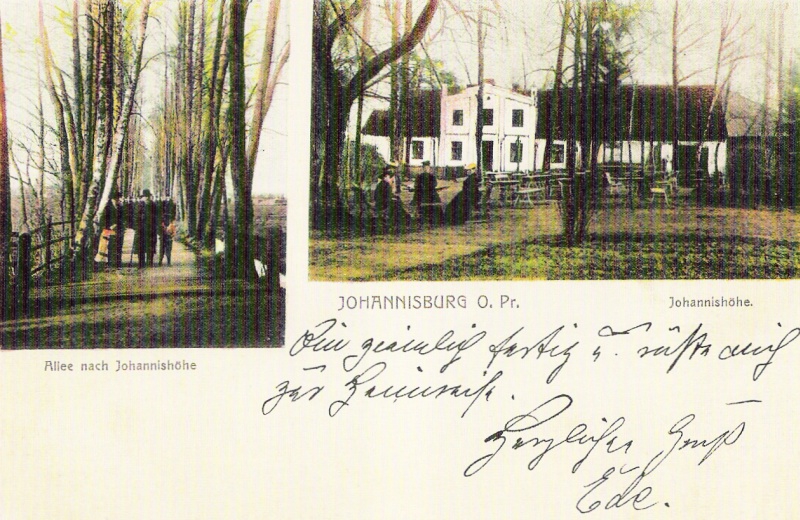 JOHANNISBURG O. Pr.
Johannishöhe.
Allee nach Johannishöhe
Bin ziemlich fertig u. rüste mich
zur Heimreise. –
Herzlichen Gruß
Ede.